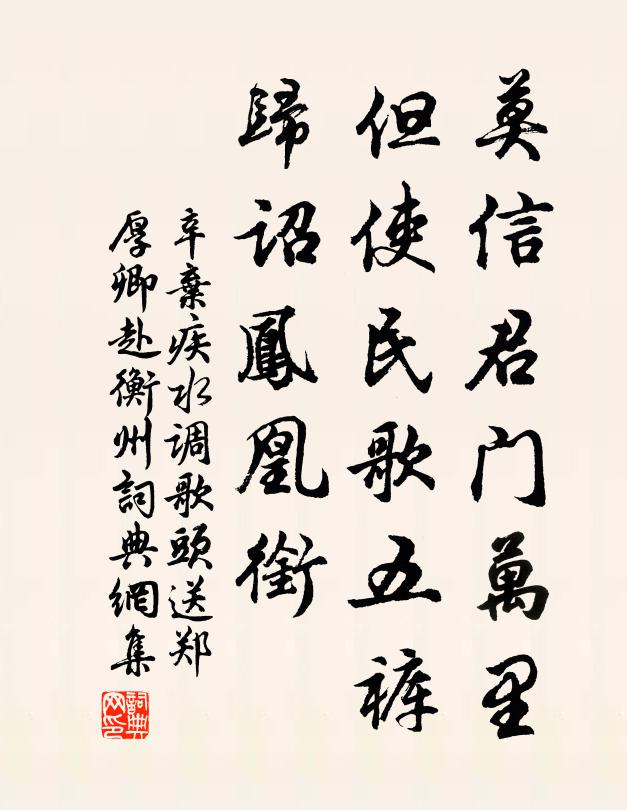 莫信君门萬里
但使民歌五裤
歸诏鳳凰銜
辛棄疾水调歌頭送郑
厚卿赴衡州詞典網集
詞典网印